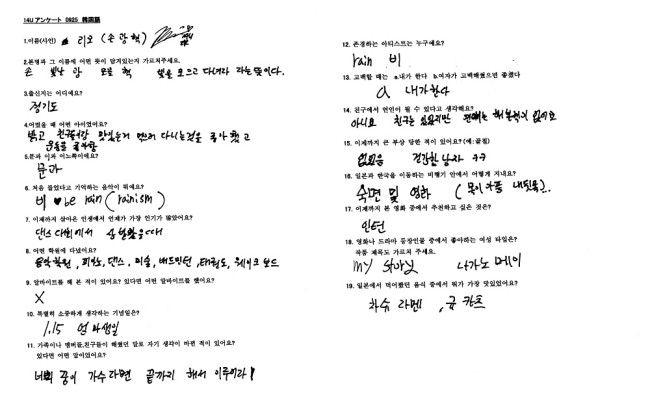 14U アンケート 0925 韓国語
1.이름(사인) 리오 (손 광혁)
2.본명과 그 이름에 어떤 뜻이 담겨있는지 가르쳐주세요.
손 빛날 광 모을 혁 빛을 모으고 다녀라 라는 뜻이다.
3.출신지는 어디에요?
경기도
4.어렸을 때 어떤 아이였어요?
밝고 친구들이랑 맛있는거 먹으러 다니는것을 좋아했고
운동을 좋아함
5.문과 이과 어느쪽이에요?
문과
6. 처음 들었다고 기억하는 음악이 뭐에요?
비 be rain (rainism)
7. 이제까지 살아온 인생에서 언제가 가장 인기가 많았어요?
댄스 대회에서 상 탔었을때
8. 어떤 학원에 다녔어요?
음악학원, 피아노, 댄스, 미술, 배드민턴, 태권도, 웨이크 보드
9. 알바이트를 해 본 적이 있어요? 있다면 어떤 알바이트를 했어요?
X
10. 특별히 소중하게 생각하는 기념일은?
1.15 엄마생일
11. 가족이나 멤버들,친구들이 해줬던 말로 자기 생각이 바뀐 적이 있어요?
있다면 어떤 말이었어요?
너의 꿈이 가수라면 끝까지 해서 이루어라!
12. 존경하는 아티스트는 누구에요?
rain 비
13. 고백할 때는 a.내가 한다 b.여자가 고백해줬으면 좋겠다
a 내가한다
14. 친구에서 연인이 될 수 있다고 생각해요?
아니요 친구는 있었지만 연애는 해본적이 없어요
15. 이제까지 큰 부상 당한 적이 있어요?(예:골절)
없었음 건강한 남자 ㅋㅋ
16. 일본과 한국을 이동하는 비행기 안에서 어떻게 지내요?
숙면 및 영화 (목이 아픔 내핏목)..
17. 이제까지 본 영화 중에서 추천하고 싶은 것은?
인턴
18. 영화나 드라마 등장인물 중에서 좋아하는 여성 타입은?
작품 제목도 가르쳐 주세요.
my story 나가노 메이
19. 일본에서 먹어봤던 음식 중에서 뭐가 가장 맛있었어요?
차슈 라멘, 규 카츠